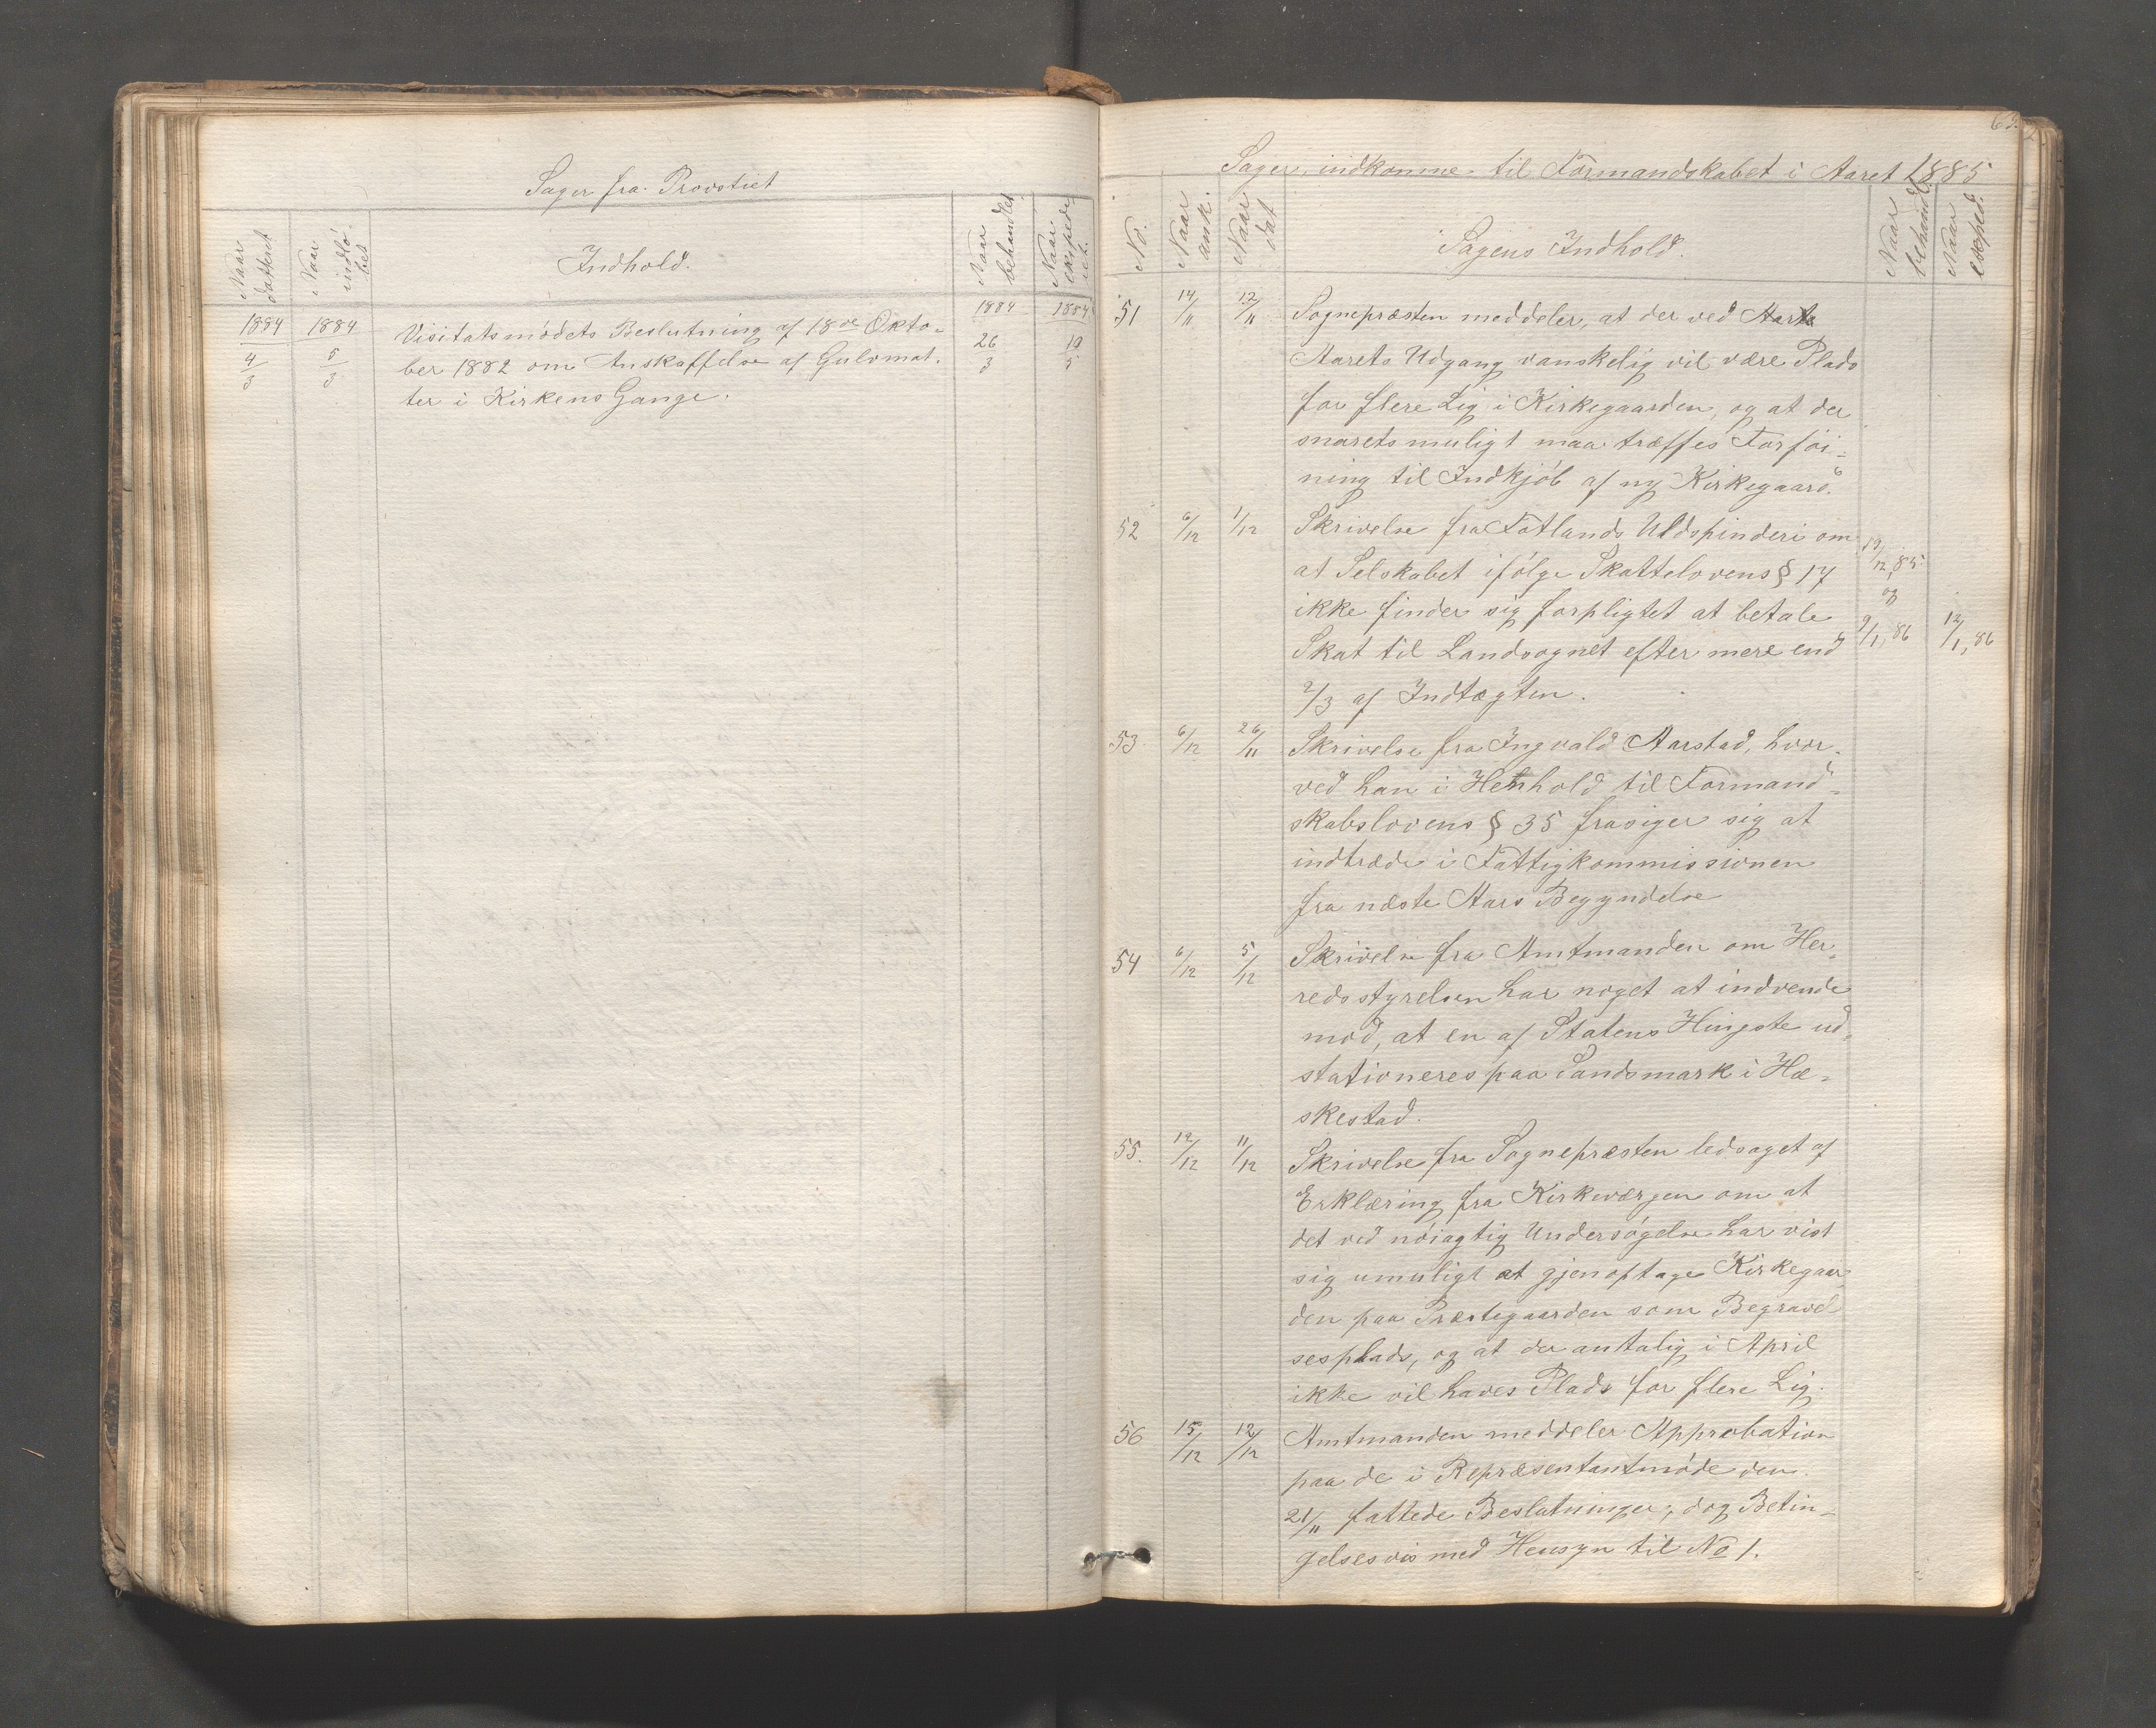 Sager fra Provstiet
Naar dateret
Naar indlø-
bet
Indhold.
Naar behandlet
Naar
ekspede
ret.
1884 1884 1884 1884
4/3 5/3 Visitatsmødets Beslutning af 18de Okto- 26/3 19/5
ber 1882 om Anskaffelse af Gulvmat-
ter i Kirkens Gange.
63.
Sager indkomne til Formandskabet i Aaret 1885
No.
Naar
ank.
Naar
dat
Sagens Indhold.
Naar
behandl.
Naar
exped.
51 14/11 12/11 Sognepræsten meddeler, at der ved
Aarets Udgang vanskelig vil være Plads
for flere Lig i Kirkegaarden, og at der
snarets muligt maa træffes Forføi-
ning til Indkjøb af ny Kirkegaard.
52 6/12 1/12 Skrivelse fra Fotlands Uldspinderi om
at Selskabet ifølge Skattelovens § 17 19/12, 85.
ikke finder sig forpligtet at betale og
Skat til Landsognet efter mere end 9/1, 86 12/1, 86
2/3 af Indtægten.
53 6/12 26/11 Skrivelse fra Ingvald Aarstad, hvor-
ved han i Henhold til Formand-
skabslovens § 35 frasiger sig at
indtræde i Fattigkommissionen
fra næste Aars Begyndelse
54 6/12 5/12 Skrivelse fra Amtmanden om Her-
redsstyrelsen har noget at indvende
mod, at en af Statens Hingste ud-
stationeres paa Sandsmark i Hæ-
skestad.
55. 12/12 11/12 Skrivelse fra Sognepræsten ledsaget af
Erklæring fra Kirkeværgen om at
det ved nøiagtig Undersøgelse har vist
sig umuligt at gjenoptage Kirkegaar
den paa Præstegaarden som Begravel
sesplads, og at der antalig i April
ikke vil haves Plads for flere Lig.
56 15/12 12/12 Amtmanden meddeler Approbation
paa de i Repræsentantmøde den
21/11 fattede Beslutninger, dog Betin-
gelsesvis med Hensyn til No 1.